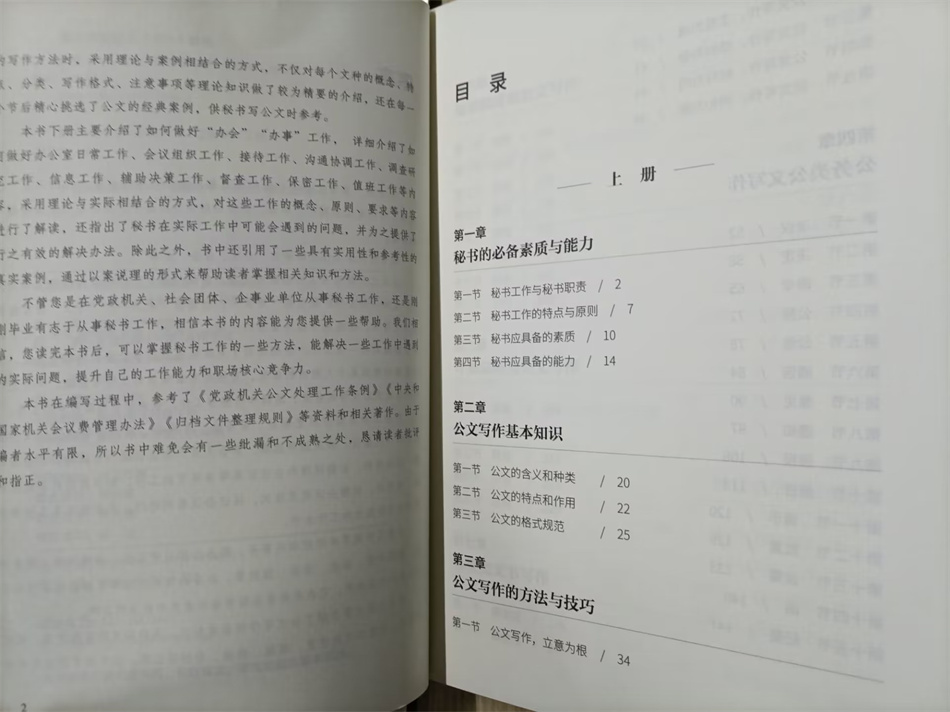 的写作方法时，采用理论与案例相结合的方式，不仅对每个文种的概念、特
点、分类、写作格式、注意事项等理论知识做了较为精要的介绍，还在每一
小节后精心挑选了公文的经典案例，供秘书写公文时参考。
本书下册主要介绍了如何做好“办会”“办事”工作， 详细介绍了如
何做好办公室日常工作、会议组织工作、接待工作、沟通协调工作、调查研
究工作、信息工作、辅助决策工作、督查工作、保密工作、值班工作等内
容，采用理论与实际相结合的方式，对这些工作的概念、原则、要求等内容
进行了解读，还指出了秘书在实际工作中可能会遇到的问题，并为之提供了
行之有效的解决办法。除此之外，书中还引用了一些具有实用性和参考性的
真实案例，通过以案说理的形式来帮助读者掌握相关知识和方法。
不管您是在党政机关、社会团体、企事业单位从事秘书工作，还是刚
刚毕业有志于从事秘书工作，相信本书的内容能为您提供一些帮助。我们相
信，您读完本书后，可以掌握秘书工作的一些方法，能解决一些工作中遇到
的实际问题，提升自己的工作能力和职场核心竞争力。
本书在编写过程中，参考了《党政机关公文处理工作条例》《中央和
国家机关会议费管理办法》《归档文件整理规则》等资料和相关著作。由于
编者水平有限，所以书中难免会有一些纰漏和不成熟之处，恳请读者批评
和指正。
2
目 录
上 册
第一章
秘书的必备素质与能力
第一节 秘书工作与秘书职责 / 2
第二节 秘书工作的特点与原则 / 7
第三节 秘书应具备的素质 / 10
第四节 秘书应具备的能力 / 14
第二章
公文写作基本知识
第一节 公文的含义和种类 / 20
第二节 公文的特点和作用 / 22
第三节 公文的格式规范 / 25
第三章
公文写作的方法与技巧
第一节 公文写作，立意为根 / 34